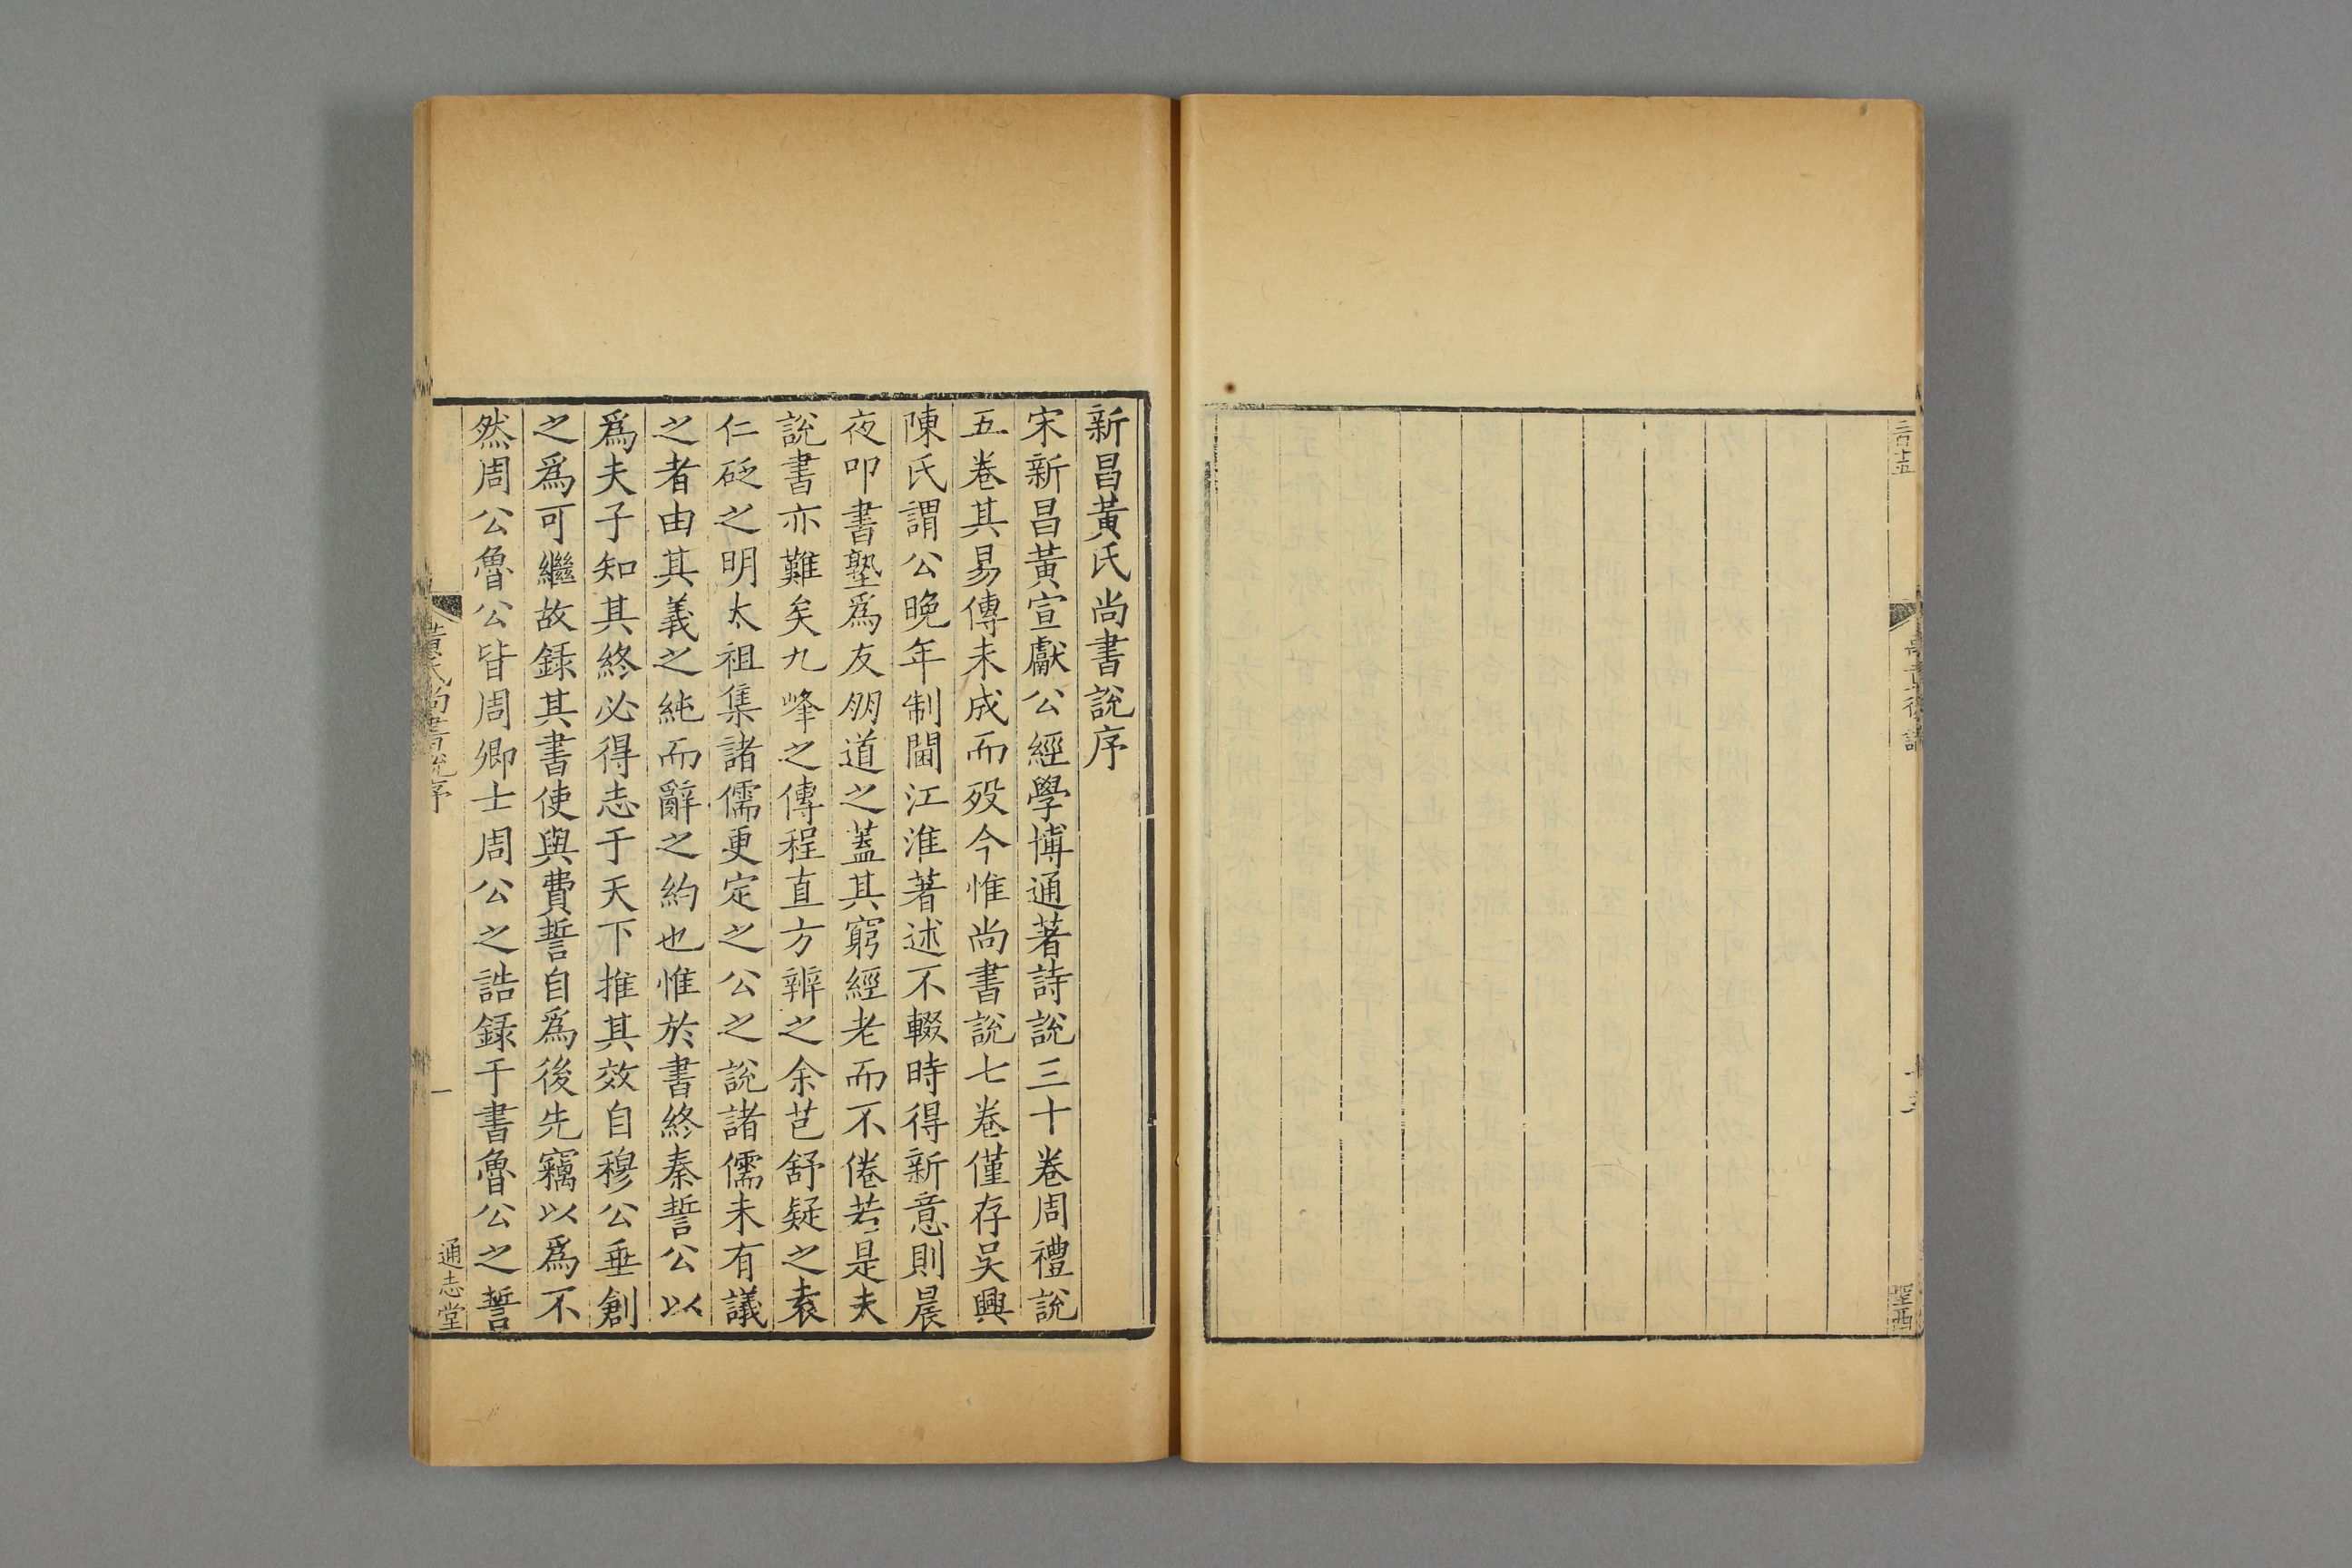 新昌黃氏尚書說序
宋新昌黃宣獻公經學博通著詩說三十卷周禮說
五卷其易傳未成而歿今惟尚書說七卷僅存吳興
陳氏謂公晚年制閫江淮著述不輟時得新意則晨
夜叩書塾爲友朋道之蓋其窮經老而不倦若是夫
說書亦難矣九峰之傳程直方辨之余芑舒疑之袁
仁砭之明太祖集諸儒更定之公之說諸儒未有議
之者由其義之純而辭之約也惟於書終秦誓公以
爲夫子知其終必得志于天下推其效自穆公垂創
之爲可繼故録其書使與費誓自爲後先竊以爲不
然周公魯公皆周卿士周公之誥録于書魯公之誓
黃氏尚書說序
一
通志堂